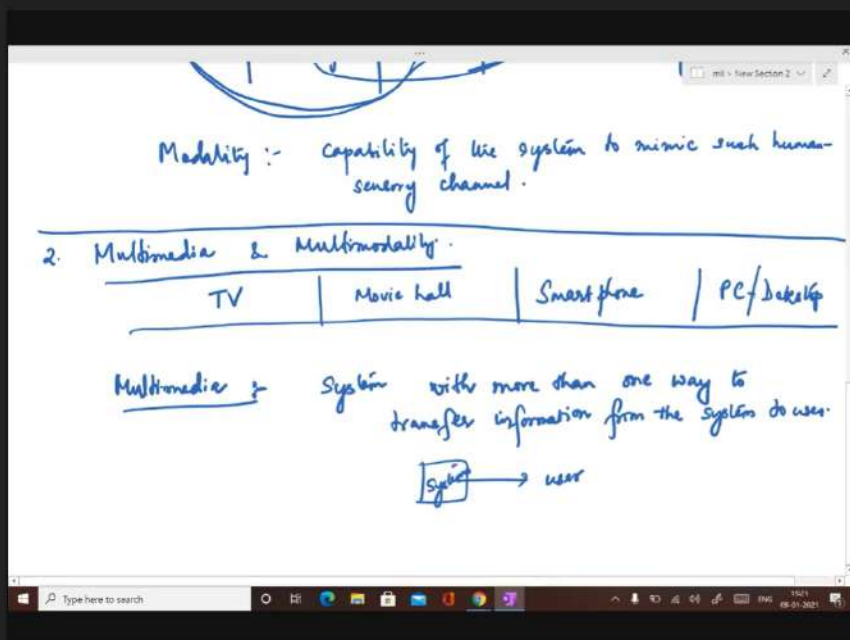 mli > New Section 2
Modality :- Capability of the system to mimic such human-
sensory channel.
2. Multimedia & Multimodality.
TV | Movie hall | Smart phone | PC/Desktop
Multimedia :- System with more than one way to
transfer information from the system to user.
System → user
Type here to search
ENG
15:21
09-01-2021